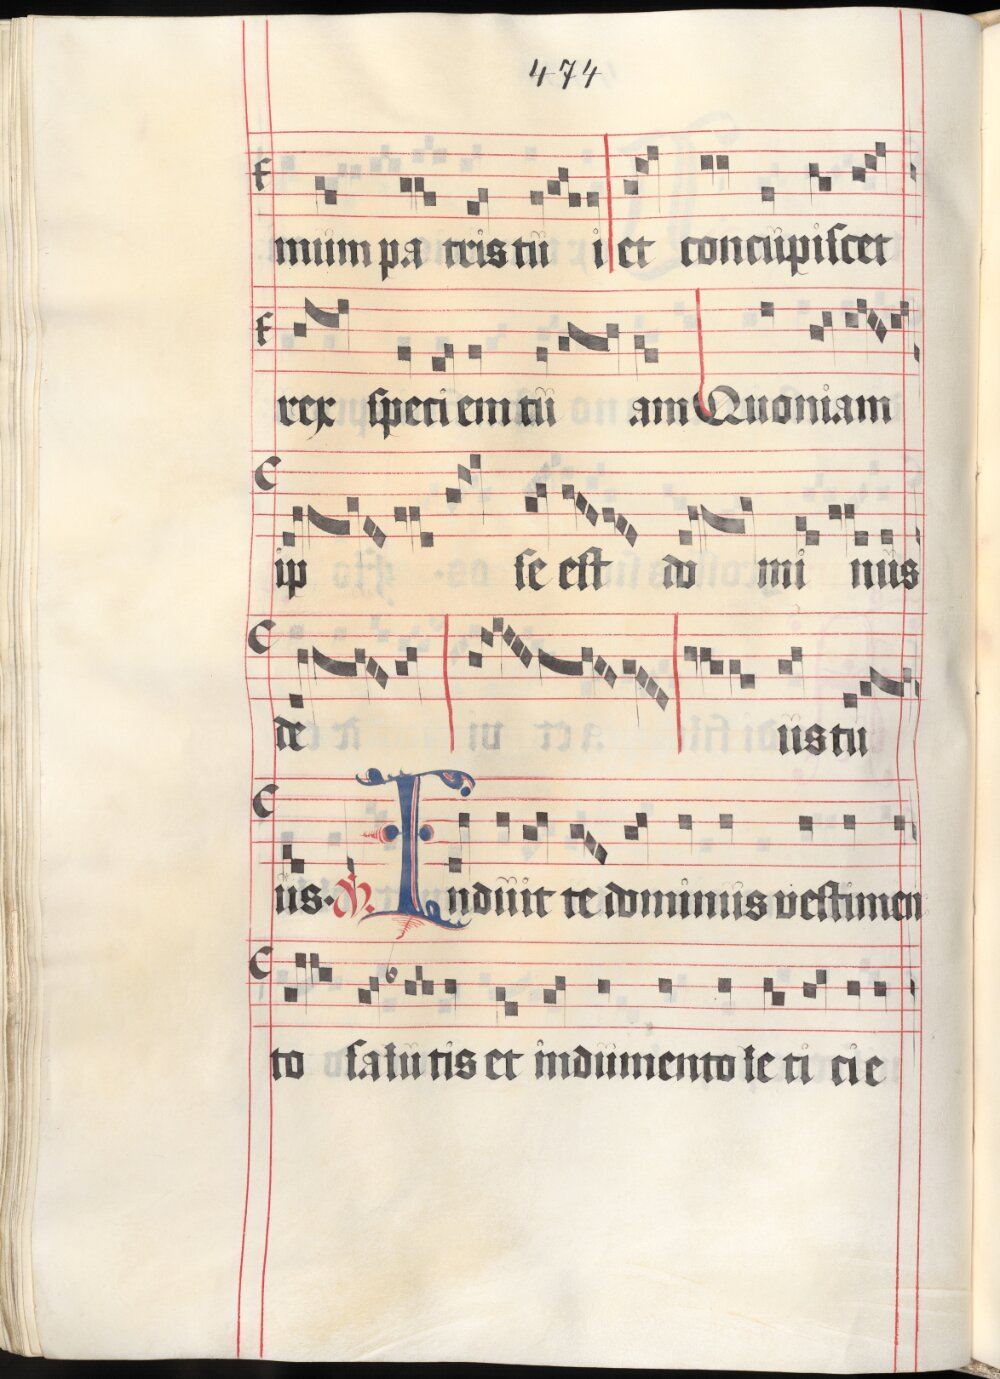 474
mum pa tris tu i et concupiscet
rex speciem tu am Quoniam
ip se est do mi nus
de us tu
us. V. Induit te dominus vestimen
to salutis et indumento le ti cie